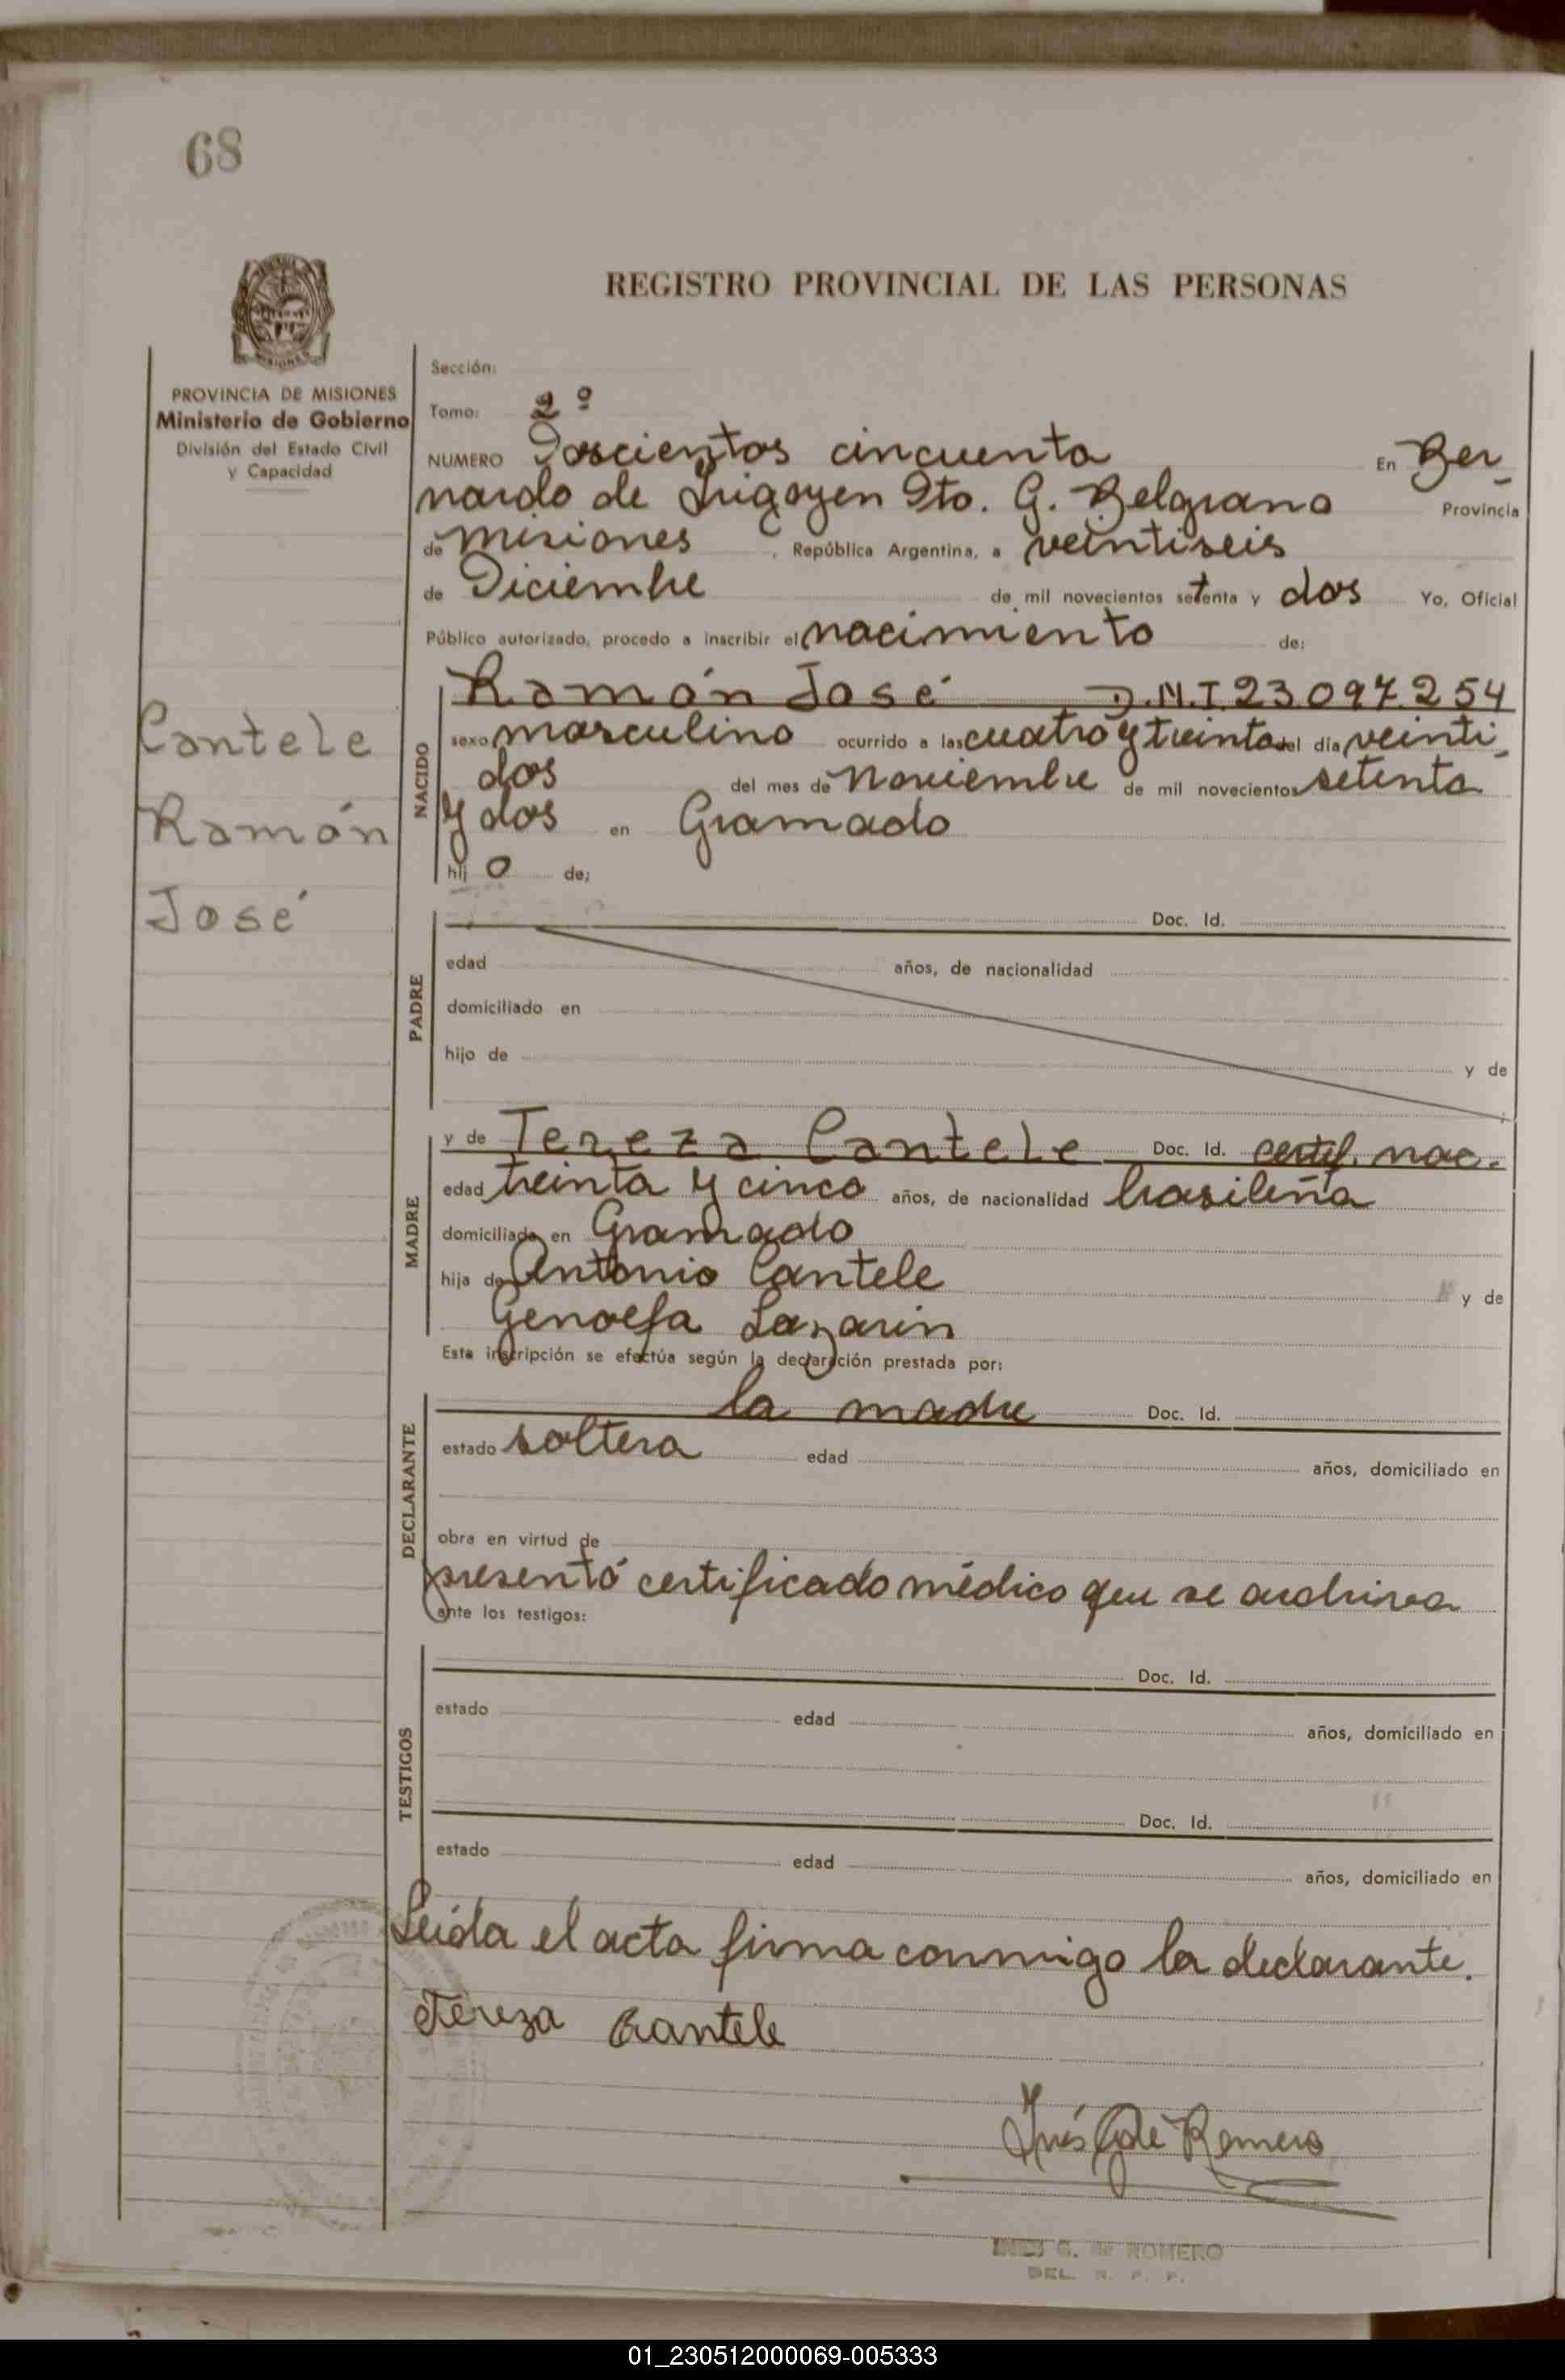 68
REGISTRO PROVINCIAL DE LAS PERSONAS
PROVINCIA DE MISIONES
Ministerio de Gobierno
División del Estado Civil
y Capacidad
Sección:
Tomo: 2º
NUMERO Doscientos cincuenta En Ber-
nardo de Irigoyen Dto. G. Belgrano Provincia
de Misiones, República Argentina, a veintiseis
de Diciembre de mil novecientos setenta y dos Yo, Oficial
Público autorizado, procedo a inscribir el nacimiento de:
Cantele
Ramón
José
NACIDO
Ramón José D.N.I 23 097 254
sexo masculino ocurrido a las cuatro y treinta del día veinti-
dos del mes de Noviembre de mil novecientos setenta
y dos en Gramado
hij o de:
PADRE
Doc. Id.
edad años, de nacionalidad
domiciliado en
hijo de y de
MADRE
y de Tereza Cantele Doc. Id. certif. nac.
edad treinta y cinco años, de nacionalidad brasileña
domiciliada en Gramado
hija de Antonio Cantele y de
Genoefa Lazarin
Esta inscripción se efectúa según la declaración prestada por:
DECLARANTE
la madre Doc. Id.
estado soltera edad años, domiciliado en
obra en virtud de
presentó certificado médico que se archiva
ante los testigos:
TESTIGOS
Doc. Id.
estado edad años, domiciliado en
Doc. Id.
estado edad años, domiciliado en
Leída el acta firma conmigo la declarante.
Tereza Cantele
Inés G de Romero
INES G. de ROMERO
DEL. R. P. P.
01_230512000069-005333